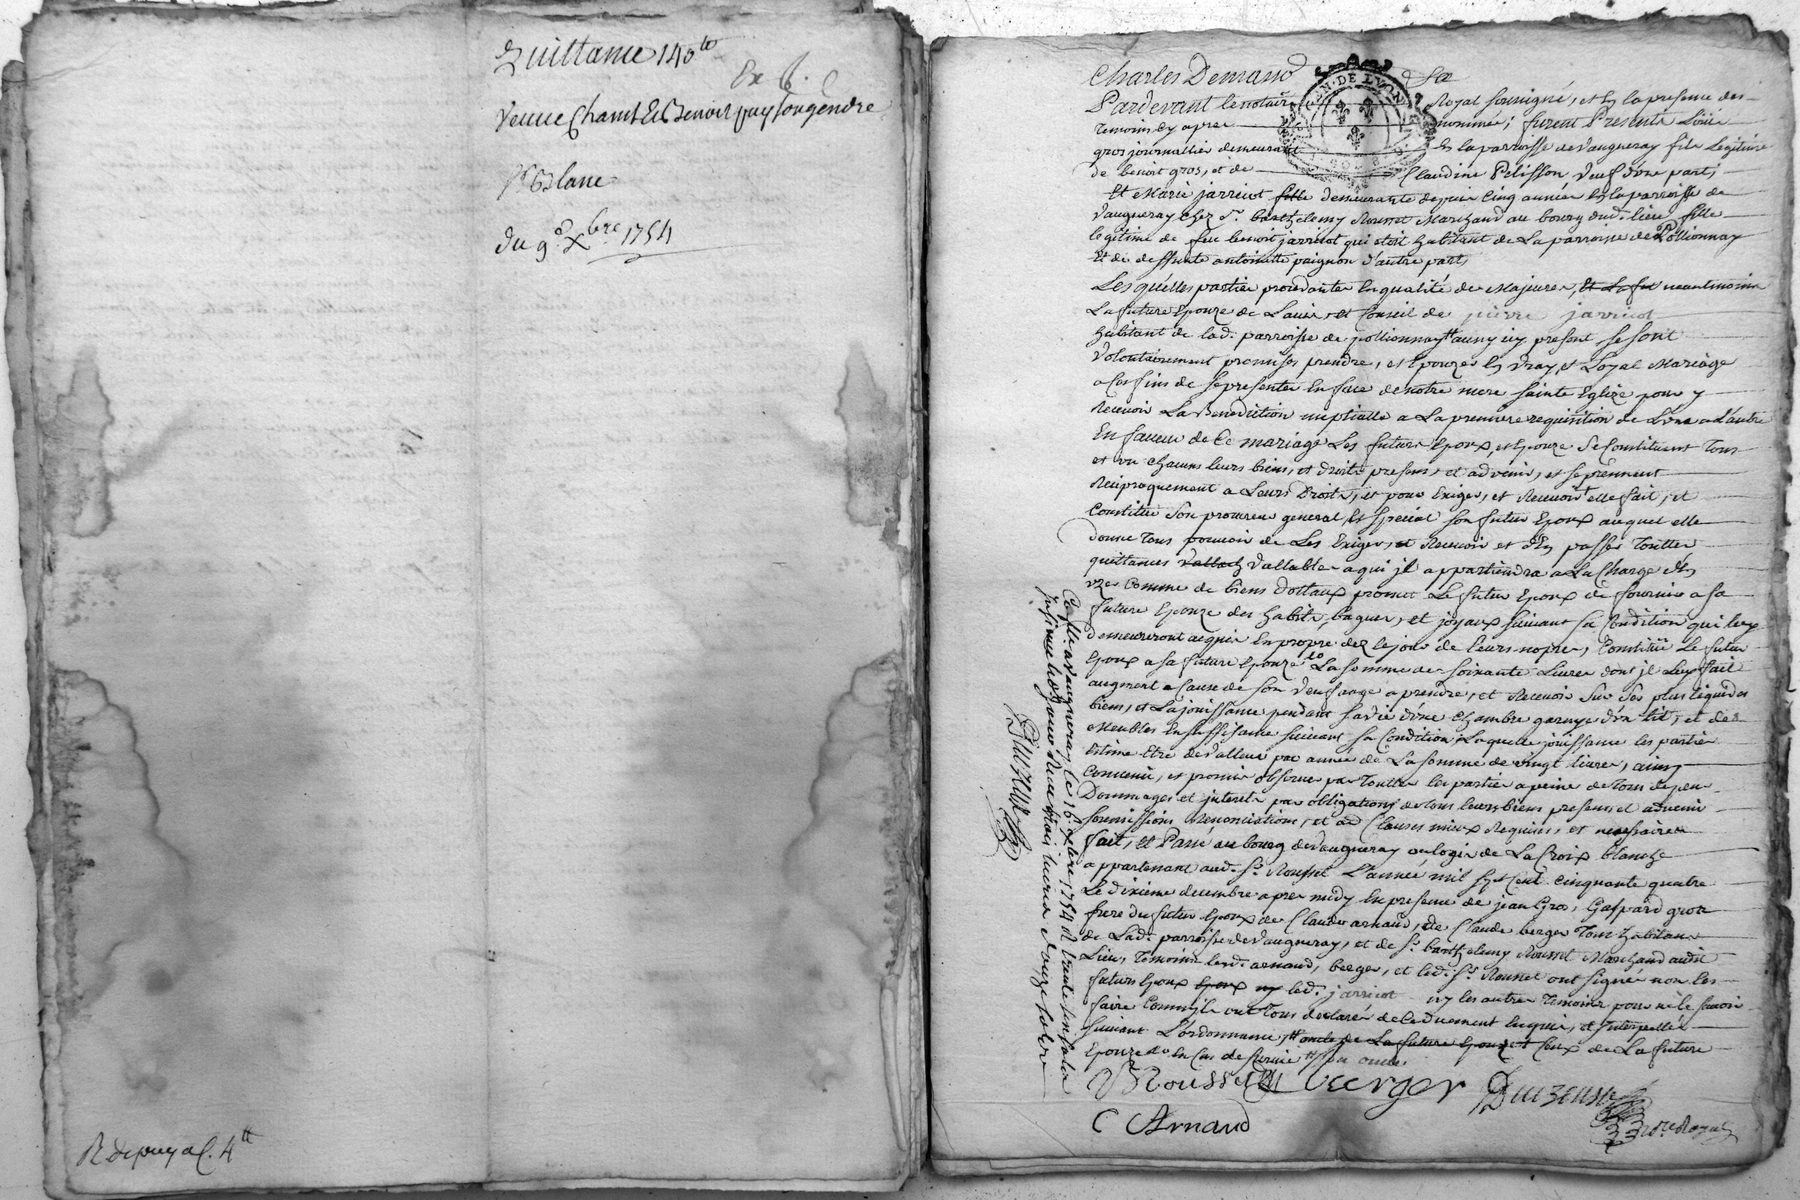 Quittance 140 tt
Ex
Veuve Chant & Benoit puy son gendre
Sr Blanc
du 9e xbre 1754
R depuy a C. 4 tt
Charles Demasso
GEN. DE LYON
Pardevant le notaire Royal soussigné, et en la presence des
temoins cy apres nommés; furent Presents Loüis
gros journallier demeurant en la parroisse de Vaugneray fils Légitime
de benoit gros, et de Claudine Pelisson veuf d'une part;
Et Marie jarricot fille demeurante depuis cinq années en la parroisse de
Vaugneray chez Sr. barthelemy Rousset Marchand au bourg dud. lieu fille
legitime de feu benoit jarricot qui etoit habitant de La parroisse de Pollionnay
Et de deffunte antoinette paignon d'autre part,
Lesquelles parties procedantes en qualité de Majeures, et La fu neantmoins
La future Epouze de L'avis et Conseil de pierre jarricot
habitant de lad. parroisse de pollionnay tt a cy present se sont
Volontairement promises prendre, et Epouzer en vray, et Loyal Mariage
a ces fins de se presenter en face de notre mere sainte Eglize pour y
Recevoir La Benediction nuptialle a La premiere requisition de L'une a L'autre
En faveur de Ce mariage Les futurs Epoux, et Epouze se Constituent tous
et un chacuns leurs biens, et droits presens, et advenir, et se prennent
Reciproquement a Leurs Droits, et pour Exiger, et Recevoir elle fait, et
Constitue son procureur general, et special son futur Epoux auquel elle
donne tous pouvoir de Les Exiger, et Recevoir et d'En passer touttes
quittances vallab Vallables a qui jl appartiendra a La Charge d'En
uzer Comme de biens dottaux promet Le futur Epoux de fournir a sa
future Epouze des habits, bagues, et joyaux suivant sa Condition qui luy
demeureront acquis en propre dez le jour de leurs nopces, Constitue Le futur
Epoux a sa future Epouze do La somme de soixante Livres dont jl Luy fait
augment a Cause de son veuffvage a prendre, et Recevoir sur ses plus liquides
biens, et La jouissance pendant sa vie d'une chambre garnye d'un lit, et de
Meubles en suffisance suivant sa Condition; Laquelle joüissance les parties
estime Etre de Valleur par année de La somme de vingt livres, ainsy
Convenu, et promis observer par touttes les parties a peine de tous depens
Dommages et interets par obligations de tous leurs biens presens et advenir
soumissions Renonciations, et aux Clauses mieux Requises, et necessaires
fait, et Passé au bourg de Vaugneray au logis de La Croix blanche
appartenant aud. Sr. Rousset L'année mil sept cent cinquante quatre
Le dixieme decembre apres midy En presence de jean Gros, Gaspard gros
frere du futur Epoux de Claude arnaud, de Claude berger tous habitans
de Lade parroisse de Vaugneray, et de Sr. barthelemy Rousset Marchand audit
Lieu, temoins lesd. arnaud, berger, et led. Sr. Rousset ont signé non les
futurs Epoux Epoux ny led. jarricot ny les autres temoins pour ne le savoir
faire Comm'jls ont tous declaré de Ce Duement Enquis, et interpellés
suivant L'ordonnance, tt oncle de La future Epouze et Ceux de La future
Epouze do en Cas de survie tt son oncle
Rousset Berger Duizeux
C Arnaud
No.re Royal
Conttlé a vaugneray Ce 16e xbre 1754